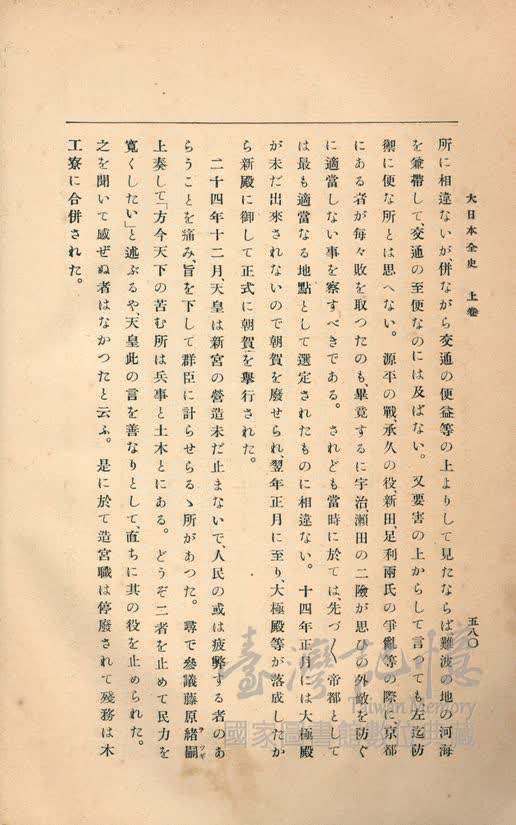 大日本全史　上卷
五八〇
所に相違ないが、併ながら交通の便益等の上よりして見たならば難波の地の河海
を兼帶して、交通の至便なのには及ばない。又要害の上からして言ても左迄防
禦に便な所とは思へない。源平の戰、承久の役、新田、足利兩氏の爭亂等の際に京都
にある者が每々敗を取つたのも、畢竟するに宇治、瀬田の二險が思ひの外敵を防ぐ
に適當しない事を察すべきである。されども當時に於ては、先づ〱帝都として
は最も適當なる地點として選定されたものに相違ない。十四年正月には大極殿
が未だ出來されないので朝賀を廢せられ、翌年正月に至り、大極殿等が落成したか
ら新殿に御して正式に朝賀を舉行された。
二十四年十二月、天皇は新宮の營造未だ止まないで、人民の或は疲弊する者のあ
らうことを痛み、旨を下して群臣に計らせらるゝ所があつた。尋で參議藤原緒嗣
ヲツギ
上奏して「方今天下の苦む所は兵事と土木とにある。どうぞ二者を止めて民力を
寬くしたい」と述ぶるや、天皇此の言を善なりとして、直ちに其の役を止められた。
之を聞いて感ぜぬ者はなかつたと云ふ。是に於て造宮職は停廢されて殘務は木
工寮に合併された。
臺灣記憶
Taiwan Memory
國家圖書館數位典藏